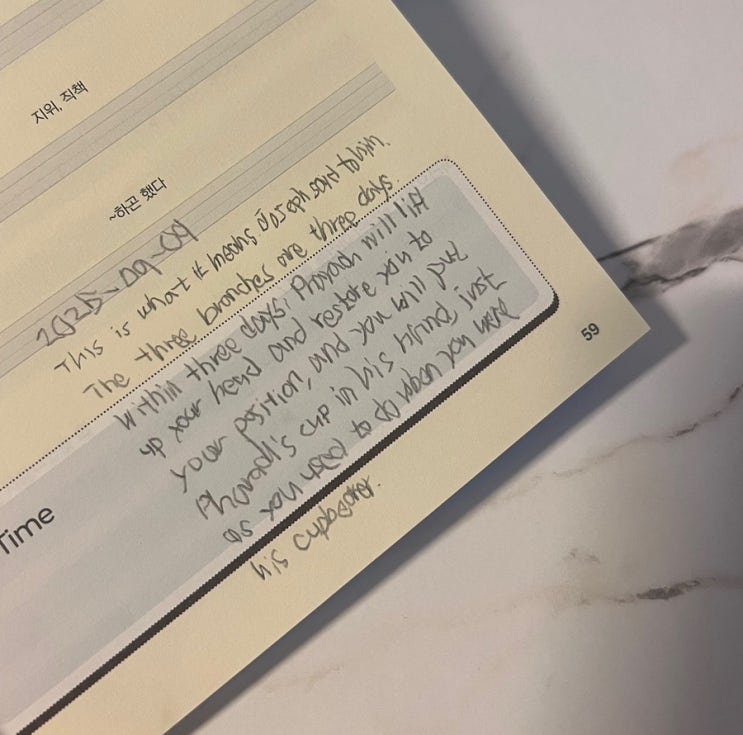 지위, 직책
~하곤 했다
2025-09-09
This is what it means, Joseph said to him.
The three branches are three days.
Within three days, Pharaoh will lift
up your head and restore you to
your position, and you will put
Pharaoh's cup in his hand, just
as you used to do when you were
his cupbearer.
Time
59